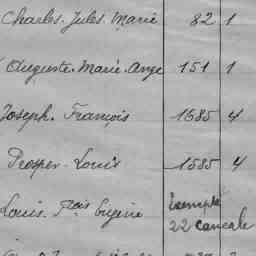 Charles. Jules. Marie 82 1
Auguste. Marie. Ange 151 1
Joseph. François 1585 4
Prosper. Louis 1585 4
Louis. Fçois Eugène Exempté
22 cancale